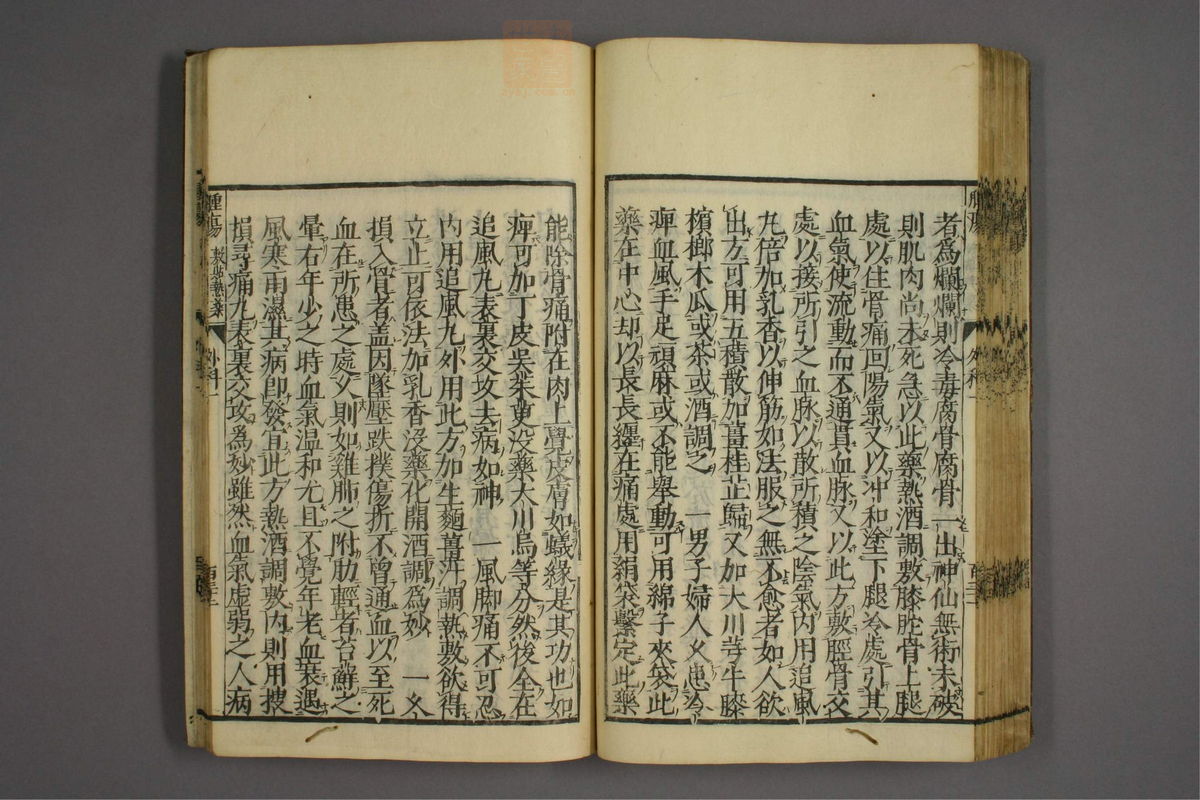 者為爛爛則冷毒腐骨腐骨一出神仙無術未破
則肌肉尚未死急以此藥熱酒調敷膝胧骨上腿
處以住骨痛回陽氣又以冲和塗下腿冷處引其
血氣使流動而不通貫血脉又以此方敷脛骨交
處以接所引之血脉以散所積之陰氣內用追風
九倍加乳香以伸筋如法服之無不愈者如人欲
出方可用五積散加薑桂芷歸又加大川芎牛膝
檳榔木瓜或茶或酒調之 一男子婦人久患冷
痺血風手足頑麻或不能舉動可用綿子夾袋此
藥在中心却以長長纒在痛處用絹袋繫定此藥
腫瘍 敷貼熱藥 外科一
能除骨痛附在肉上覺皮膚如蟻緣是其功也如
痺可加丁皮吳茱萸没藥大川烏等分然後全在
追風丸表裏交攻去病如神 一風脚痛不可忍
内用追風丸外用此方加生麵薑汁調熱敷欲得
立止可依法加乳香没藥化開酒調為妙 一久
損入骨者盖因墜壓跌撲傷折不曾通血以至死
血在所患之處久則如雞肺之附肋輕者苔蘚之
暈右年少之時血氣温和尤且不覺年老血衰遇
風寒雨濕其病即發宜此方熱酒調敷内則用搜
損尋痛丸表裏交攻為妙雖然血氣虛弱之人病